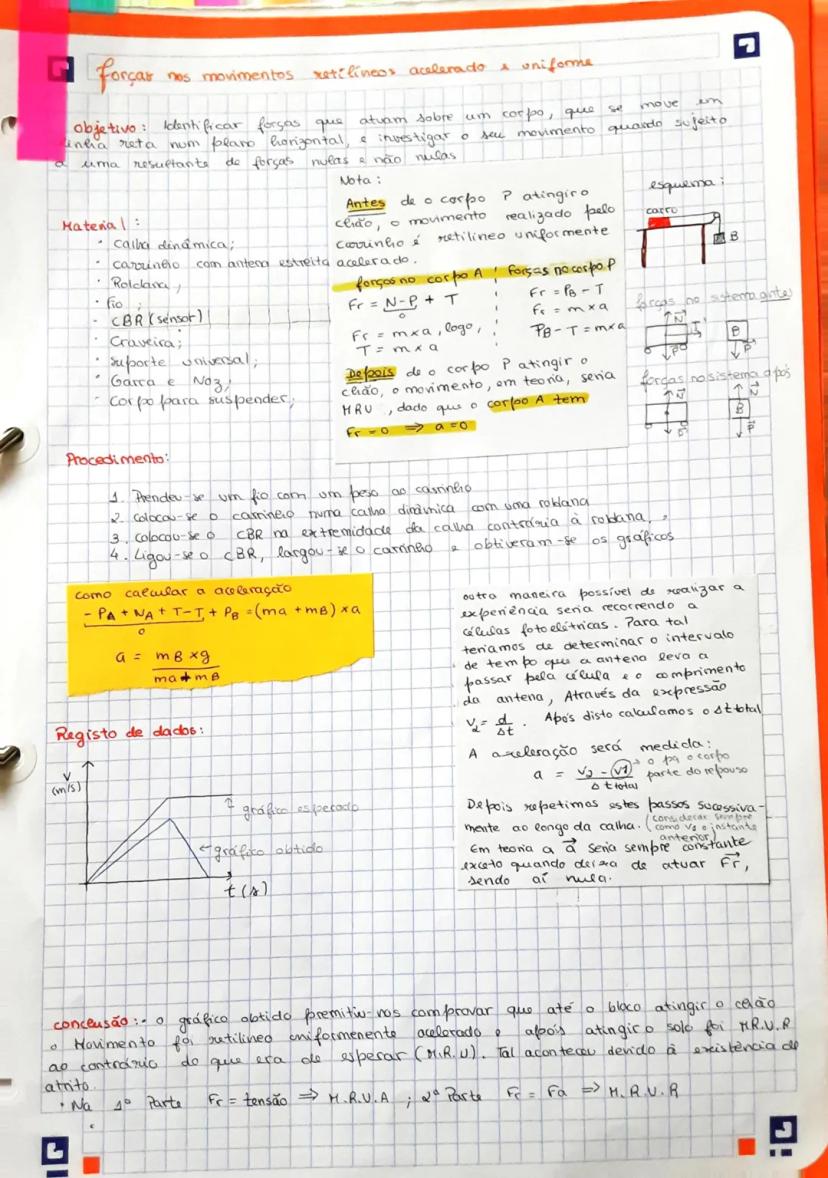 forças nos movimentos retilíneos acelerado e uniforme
objetivo: Identificar forças que atuam sobre um corpo, que se move em
linha reta num plano horizontal, e investigar o seu movimento quando sujeito
a uma resultante de forças nulas e não nulas
Material:
• Calha dinâmica;
• carrinho com antena estreita
• Roldana;
• fio;
• CBR (sensor)
• Craveira;
• suporte universal;
• Garra e Noz;
• Corpo para suspender;
Nota:
Antes de o corpo P atingir o
chão, o movimento realizado pelo
carrinho é retilíneo uniformente
acelerado.
forças no corpo A
Fr = N-P + T
0
Fr = m x a, logo,
T = m x a
Forças no corpo P
Fr = PB - T
Fr = m x a
PB - T = m x a
Depois de o corpo P atingir o
chão, o movimento, em teoria, seria
MRU, dado que o corpo A tem
Fr = 0 => a = 0
esquema:
carro
B
forças no sistema antes
N
T
P
B
P
forças no sistema após
N
P
N
B
P
Procedimento:
1. Prendeu-se um fio com um peso ao carrinho
2. Colocou-se o carrinho numa calha dinâmica com uma roldana
3. colocou-se o CBR na extremidade da calha contrária à roldana,
4. Ligou-se o CBR, largou-se o carrinho e obtiveram-se os gráficos
como calcular a aceleração
- PA + NA + T - T, + PB = (ma + mB) x a
0
a = mB x g
ma + mB
outra maneira possível de realizar a
experiência seria recorrendo a
células fotoelétricas. Para tal
teriamos de determinar o intervalo
de tempo que a antena leva a
passar pela célula e o comprimento
da antena, Através da expressão
V2 = d/Δt. Após disto calculamos o Δt total
A aceleração será medida:
a = V2 - V1 → 0 pq o corpo
Δt total parte do repouso
Depois repetimos estes passos sucessiva-
mente ao longo da calha. (considerar sempre
como V0 o instante
anterior)
Em teoria a a⃗ seria sempre constante
exceto quando deixa de atuar F⃗r,
sendo aí nula.
Registo de dados:
V
(m/s)
gráfico esperado
gráfico obtido
t(s)
conclusão:- o gráfico obtido premitiu-nos comprovar que até o bloco atingir o chão
o Movimento foi retilíneo uniformenente acelerado e após atingir o solo foi M.R.U.R
ao contrário do que era de esperar (M.R.U). Tal aconteceu devido à existência de
atrito.
• Na 1º Parte Fr = tensão => M.R.U.A ; 2º Parte Fr = Fa => M.R.U.R